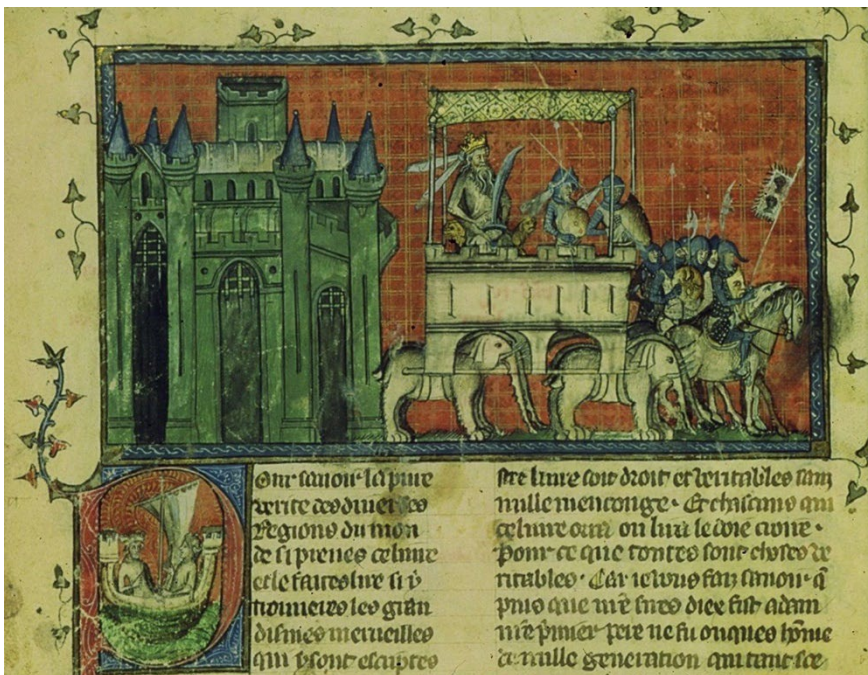 Our sauoir la pure
verite des diuerses
Regions du mon
de si prenes ce liure
et le faites lire si y
trouueres les gran
dismes merueilles
qui y sont escriptes
stre liure soit droit et veritables sanz
nulle menconge. Et chascuns qui
ce liure orra ou lira le doie croire.
Pour ce que toutes sont choses ve
ritables. Car ie vous faz sauoir q̃
puis que nr̃e sires diex fist adam
nr̃e p̃mier pere ne fu onques hõme
de nulle generation qui tant sce